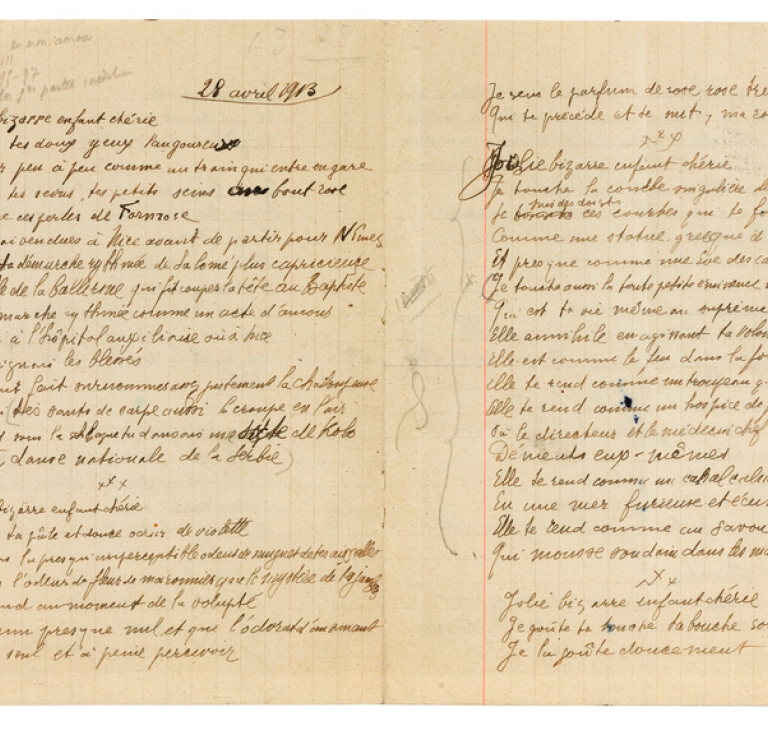 28 avril 1913
bizarre enfant chérie
tes doux yeux langoureux
peu à peu comme un train qui entre en gare
tes seins, tes petits seins au bout rose
ces perles de Formose
ai vendues à Nice avant de partir pour Nîmes
ta démarche rythmée de Salomé plus capricieuse
de la ballerine qui fit couper la tête au Baptiste
marche rythmée comme un acte d'amour
à l'hôpital auxiliaire où à Nice
les blessés
fait surnommer assez justement la chaloupeuse
tes sauts de carpe aussi la croupe en l'air
sous la schlague tu dansais une sorte de Kolo
danse nationale de la Serbie)
xxx
bizarre enfant chérie
ta pâle et douce odeur de violette
la presqu'imperceptible odeur de muguet de tes aisselles
l'odeur de fleur de maronnier que le mystère de tes jambes
au moment de la volupté
presque nul et que l'odorat d'un amant
seul et à peine percevoir
Je sens le parfum de rose rose
Qui te précède et te suit, ma
xxx
Jolie bizarre enfant chérie
Je touche la courbe singulière de
Je suis des doigts ces courbes qui te
Comme une statue grecque d
Et presque comme une Eve des
Je touche aussi la toute petite éminence
Qui est ta vie même au suprême
Elle annihile en agissant ta
Elle est comme le feu dans la
Elle te rend comme un troupeau
Elle te rend comme un hospice de
Où le directeur et le médecin chef
Déments eux-mêmes
Elle te rend comme un canal
En une mer furieuse et
Elle te rend comme un savon
Qui mousse soudain dans les
xxx
Jolie bizarre enfant chérie
Je goûte ta bouche ta bouche
Je la goûte doucement